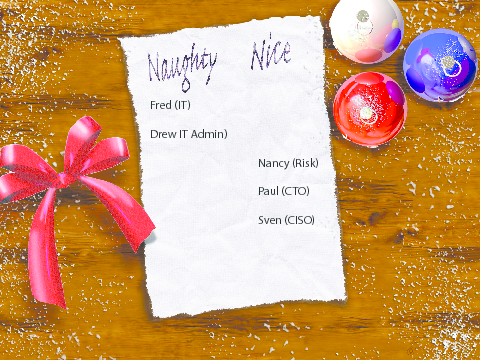 Naughty Nice
Fred (IT)
Drew IT Admin)
Nancy (Risk)
Paul (CTO)
Sven (CISO)